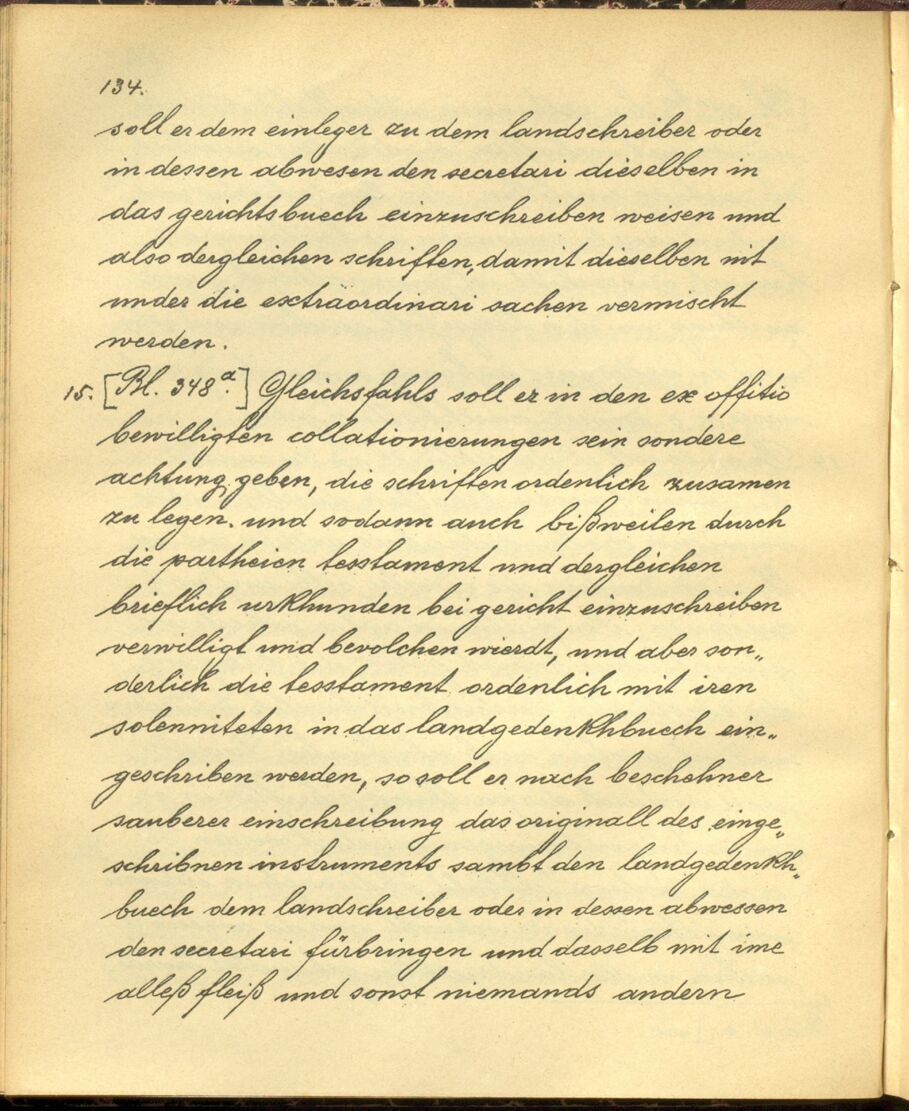 134.
soll er dem einleger zu dem landschreiber oder
in dessen abwesen den secretari dieselben in
das gerichtsbuech einzuschreiben weisen und
also dergleichen schriften, damit dieselben nit
under die extraordinari sachen vermischt
werden.
15. [Bl. 348a.] Gleichsfahls soll er in den ex offitio
bewilligten collationierungen sein sondere
achtung geben, die schriften ordenlich zusamen
zu legen. und sodann auch bißweilen durch
die partheien tesstament und dergleichen
brieflich urkhunden bei gericht einzuschreiben
verwilligt und bevolchen wierdt, und aber son„
derlich die tesstament ordenlich mit iren
solenniteten in das landgedenkhbuech ein„
geschriben werden, so soll er nach beschehner
sauberer einschreibung das originall des einge„
schribnen instruments sambt den landgedenkh„
buech dem landschreiber oder in dessen abwessen
den secretari fürbringen und dasselb mit ime
alleß fleiß und sonst niemands andern